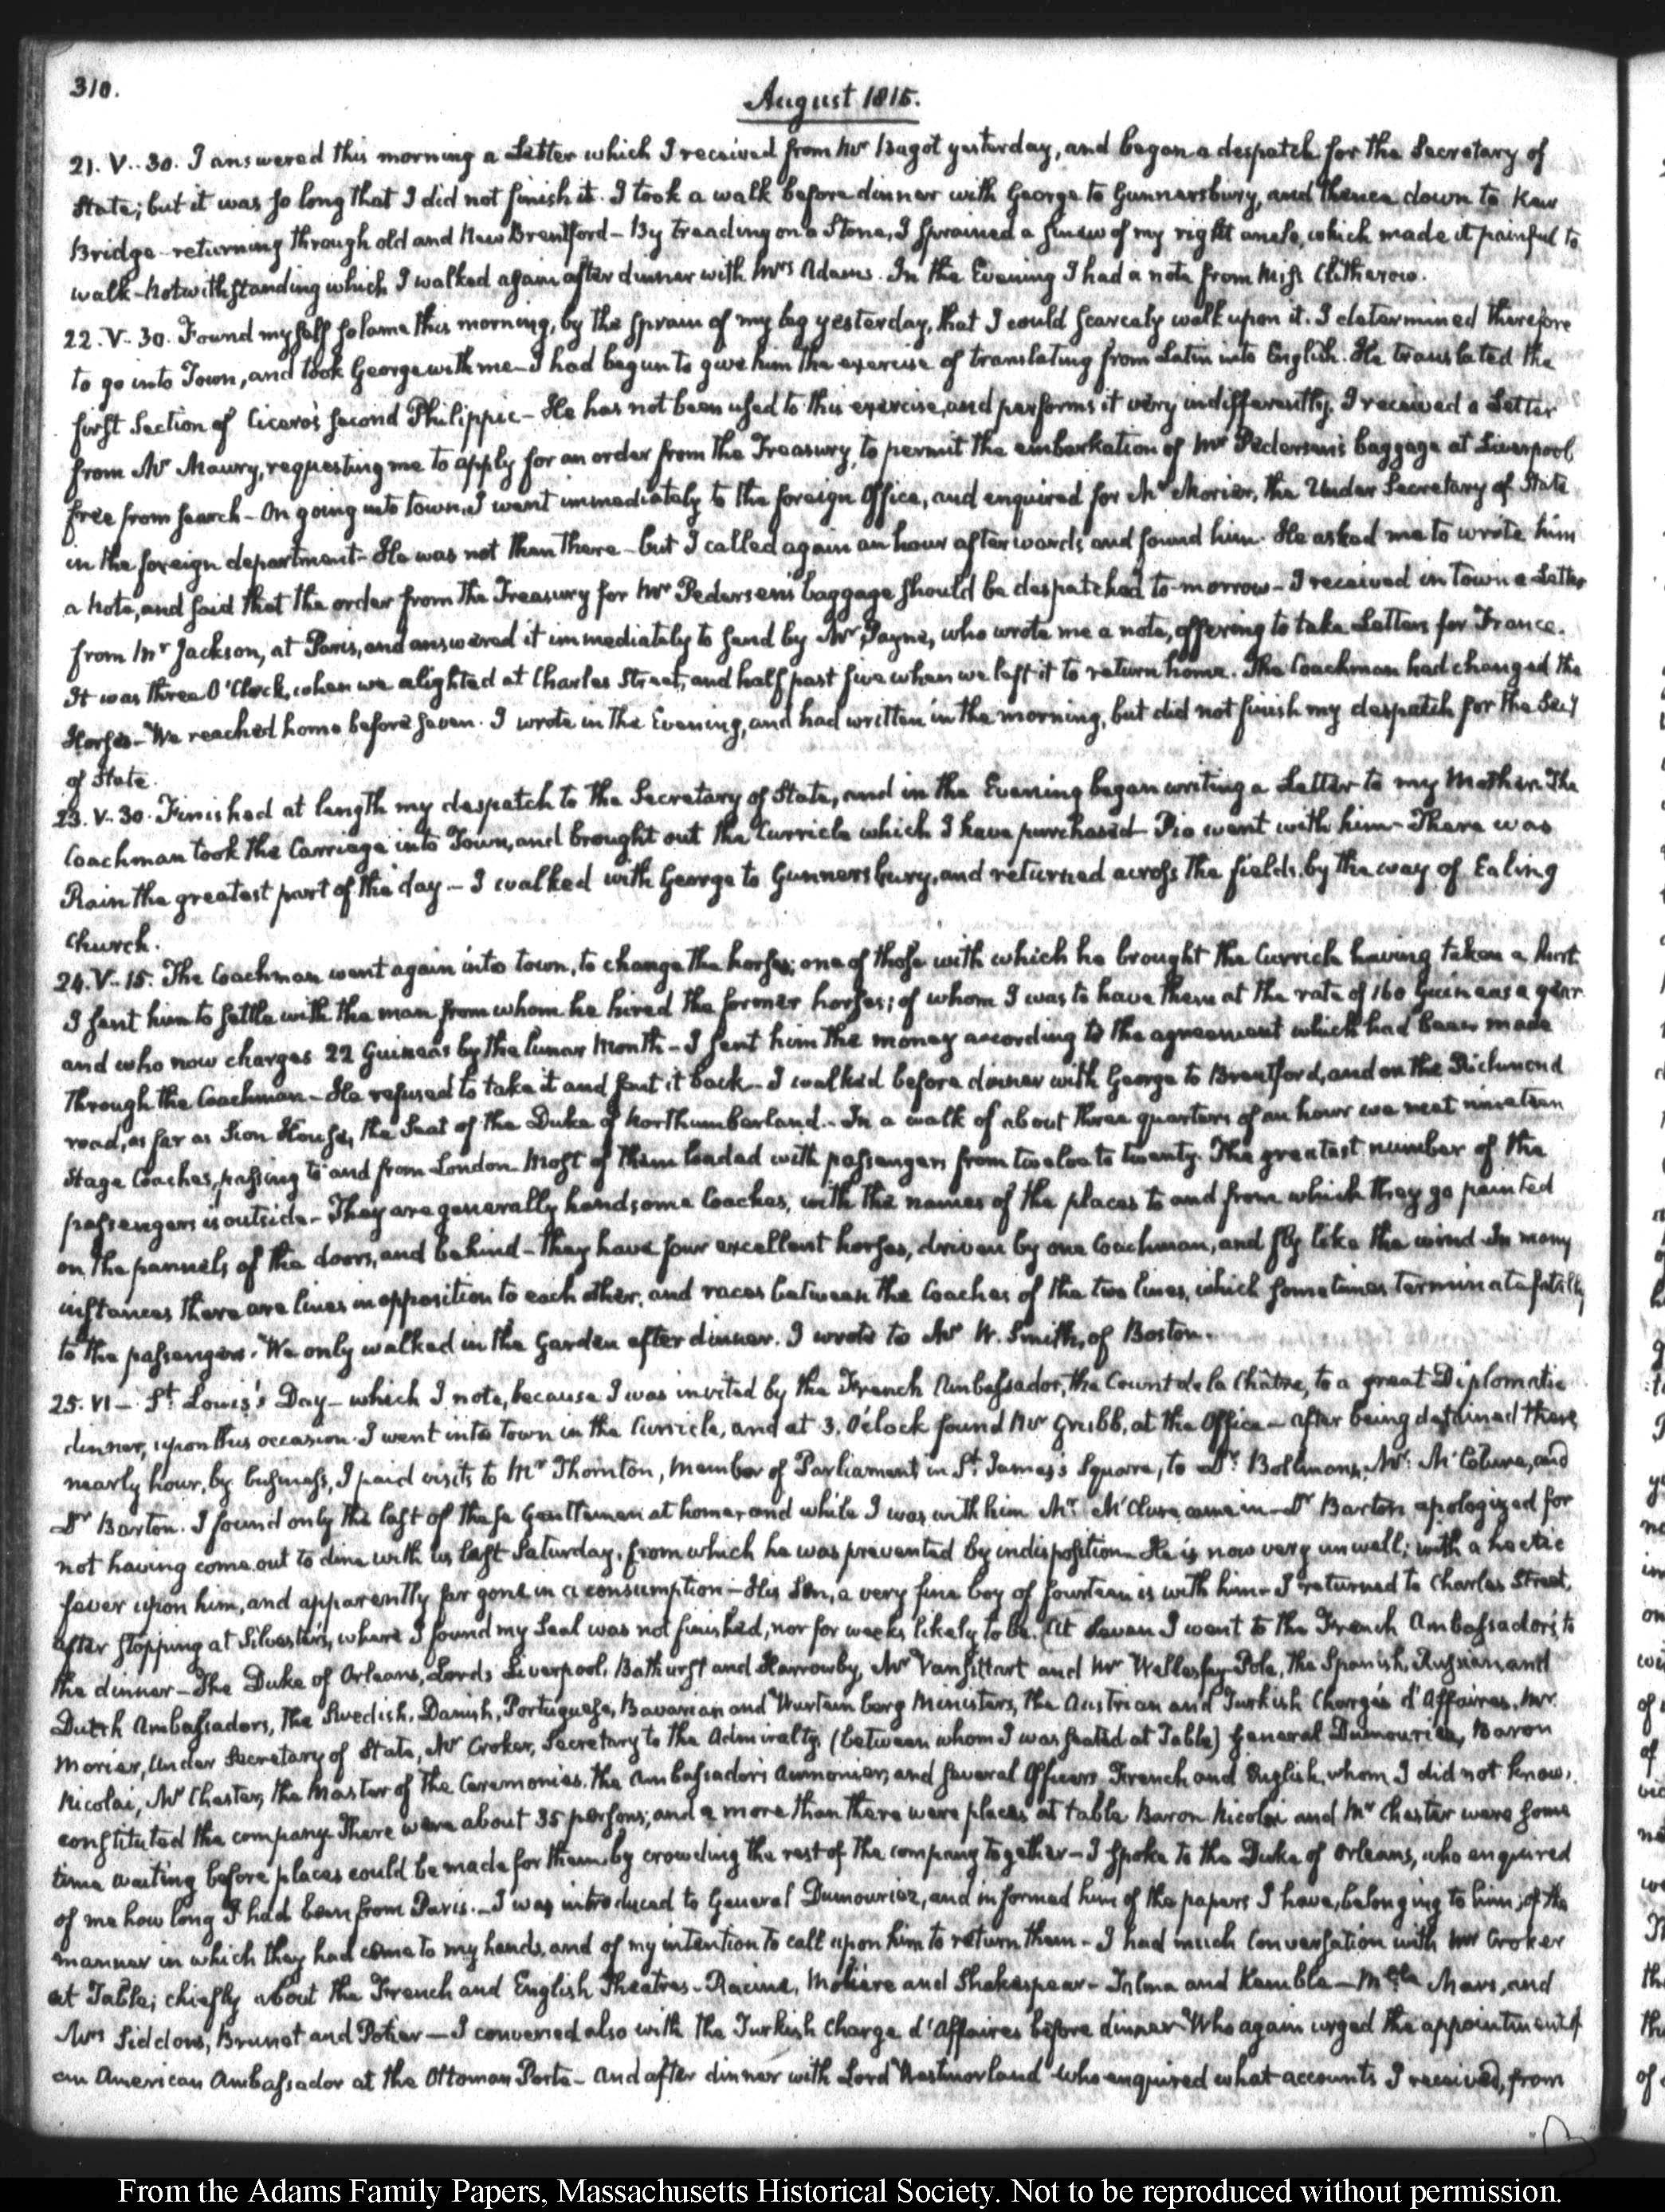 310.
August 1815.
21. V.. 30. I answered this morning a Letter which I received from Mr Bagot yesterday, and began a despatch for the Secretary of
State; but it was so long that I did not finish it. I took a walk before dinner with George to Gunnersbury, and thence down to Kew
Bridge - returning through old and New Brentford - By treading on a Stone, I sprained a sinew of my right ancle, which made it painful to
walk - Notwithstanding which I walked again after dinner with Mrs Adams. In the Evening I had a note from Miss Clitherow.
22. V. 30. Found myself so lame this morning, by the sprain of my leg yesterday, that I could scarcely walk upon it. I determined therefore
to go into Town, and took George with me - I had begun to give him the exercise of translating from Latin into English. He translated the
first Section of Cicero's second Philippic - He has not been used to this exercise, and performs it very indifferently. I received a Letter
from Mr Maury, requesting me to apply for an order from the Treasury, to permit the embarkation of Mr Pedersen's baggage at Liverpool
free from search - On going into town, I went immediately to the foreign Office, and enquired for Mr Morier, the Under Secretary of State
in the foreign department - He was not then there - but I called again an hour afterwards and found him. He asked me to wrote him
a Note, and said that the order from the Treasury for Mr Pedersen's baggage should be despatched to-morrow - I received in Town a Letter
from Mr Jackson, at Paris, and answered it immediately to send by Mr Payne, who wrote me a note, offering to take Letters for France.
It was three O'Clock, when we alighted at Charles Street, and half past five when we left it to return home. The Coachman had changed the
Horses - We reached home before seven. I wrote in the Evening, and had written in the morning, but did not finish my despatch for the Secy
of State.
23. V.. 30. Finished at length my despatch to the Secretary of State, and in the Evening began writing a Letter to my Mother. The
Coachman took the Carriage into Town, and brought out the Curricle which I have purchased - Pio went with him - There was
Rain the greatest part of the day - I walked with George to Gunnersbury, and returned across the fields by the way of Ealing
Church.
24. V.. 15. The Coachman went again into town, to change the horses; one of those with which he brought the Curricle having taken a hurt
I sent him to settle with the man from whom he hired the former horses; of whom I was to have them at the rate of 160 Guineas a year
and who now charges 22 Guineas by the lunar Month - I sent him the money according to the agreement which had been made
through the Coachman - He refused to take it and sent it back - I walked before dinner with George to Brentford, and on the Richmond
road, as far as Sion House, the Seat of the Duke of Northumberland. - In a walk of about three quarters of an hour we met nineteen
Stage Coaches, passing to and from London. Most of them loaded with passengers from twelve to twenty. The greatest number of the
passengers is outside - They are generally handsome Coaches, with the names of the places to and from which they go painted
on the pannels of the doors, and behind - they have four excellent horses, driven by one Coachman, and fly like the wind - In many
instances there are lines in opposition to each other, and races between the Coaches of the two lines, which sometimes terminate fatally
to the passengers. We only walked in the Garden after dinner. I wrote to Mr W. Smith, of Boston.
25. VI - St Louis's Day - which I note, because I was invited by the French Ambassador, the Count de la Châtre, to a great Diplomatic
dinner, upon this occasion. I went into Town in the Curricle, and at 3. O'clock found Mr Grubb, at the Office - after being detained there
nearly hour, by business, I paid visits to Mr Thornton, Member of Parliament in St James's Square, to Dr Bollmann, Mr. McClure, and
Dr Barton. I found only the last of these Gentlemen at home, and while I was with him Mr McClure came in - Dr Barton apologized for
not having come out to dine with us last Saturday, from which he was prevented by indisposition - He is now very unwell; with a hectic
fever upon him, and apparently far gone in a consumption - His Son, a very fine boy of fourteen is with him - I returned to Charles Street,
after stopping at Silvester's, where I found my Seal was not finished, nor for weeks likely to be. At Seven I went to the French Ambassador's to
the dinner - The Duke of Orleans, Lords Liverpool, Bathurst and Harrowby, Mr Vansittart and Mr Wellesley-Pole, the Spanish, Russian and
Dutch Ambassadors, the Swedish, Danish, Portuguese, Bavarian and Wurtemberg Ministers, the Austrian and Turkish Chargés d'Affaires, Mr.
Morier, Under Secretary of State, Mr Croker, Secretary to the Admiralty, (between whom I was seated at Table) General Dumouriez, Baron
Nicolai, Mr Chester, the Master of the Ceremonies, the Ambassador's Aumonier, and several Officers French and English, whom I did not know,
constituted the company. There were about 35 persons; and 2 more than there were places at table Baron Nicolai and Mr Chester were some
time waiting before places could be made for them by crowding the rest of the company together - I spoke to the Duke of Orleans, who enquired
of me how long I had been from Paris. - I was introduced to General Dumouriez, and informed him of the papers I have, belonging to him; of the
manner in which they had come to my hands, and of my intention to call upon him to return them - I had much Conversation with Mr Croker
at Table; chiefly about the French and English Theatres - Racine, Moliere and Shakespear - Talma and Kemble - Mlle Mars, and
Mrs Siddons, Brunet and Potier - I conversed also with the Turkish Charge d'Affaires before dinner Who again urged the appointment of
an American Ambassador at the Ottoman Porte - And after dinner with Lord Westmorland who enquired what accounts I received, from
From the Adams Family Papers, Massachusetts Historical Society. Not to be reproduced without permission.